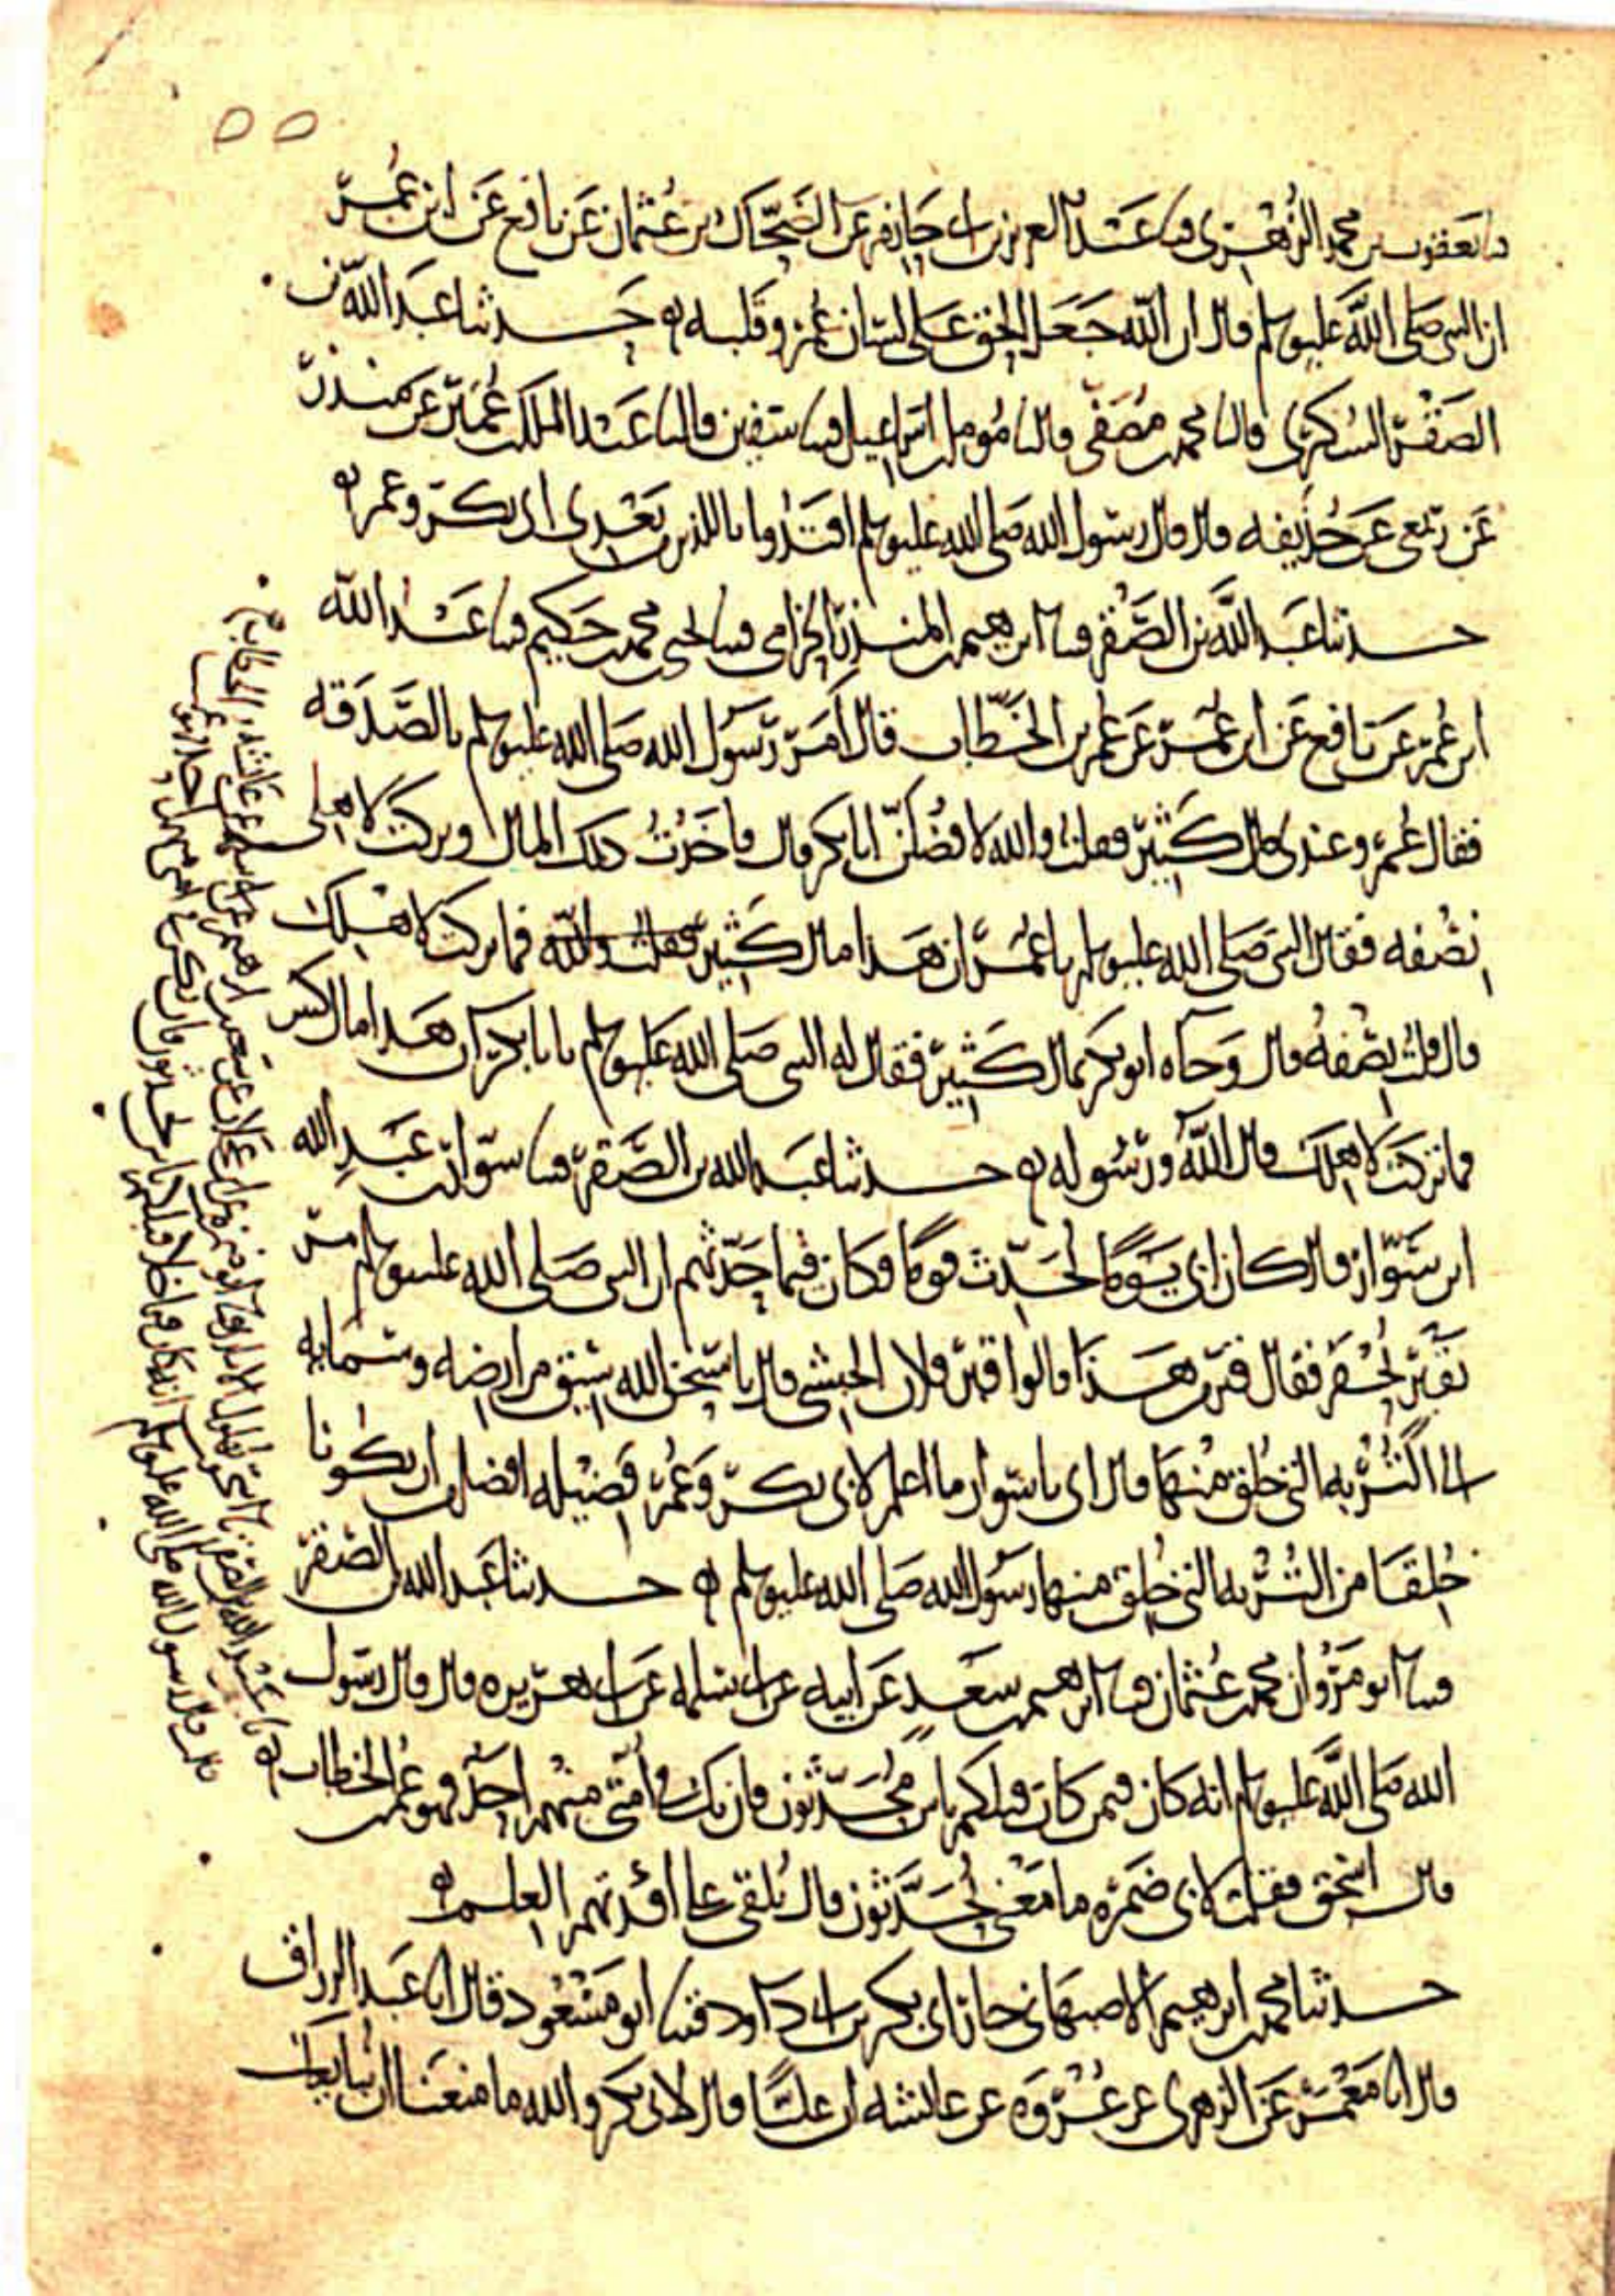 ٥٥
ثنا يعقوب بن محمد الزهري قثنا عبد العزيز بن ابي حازم عن الضحاك بن عثمان عن نافع عن ابن عمر
ان النبي صلى الله عليه وسلم قال ان الله جعل الحق على لسان عمر وقلبه ه حدثنا عبد الله بن
الصقر السكري قال نا محمد بن مصفى قال نا مومل بن اسماعيل قثنا سفين قال نا عبد الملك بن عمير عن منذر
عن ربعي عن حذيفه قال قال رسول الله صلى الله عليه وسلم اقتدوا باللذين بعدي ابي بكر وعمر ه
حدثنا عبد الله بن الصقر قثنا ابرهيم بن المنذر الحزامي قثنا يحيى بن محمد بن حكيم قثنا عبد الله
ابن عمر عن نافع عن ابن عمر عن عمر بن الخطاب قال امر رسول الله صلى الله عليه وسلم بالصدقه
فقال عمر وعندي مال كثير فقلت والله لافضلن ابا بكر قال فاخذت ذلك المال وتركت لاهلي
نصفه فقال النبي صلى الله عليه وسلم يا عمر ان هذا مال كثير فقلت والله فما تركت لاهلك
قال قلت نصفه قال وجاه ابو بكر بمال كثير فقال له النبي صلى الله عليه وسلم يا با بكر ان هذا مال كثير
فما تركت لاهلك قال الله ورسوله ه حدثنا عبد الله بن الصقر قثنا سوار بن عبد الله
ابن سوار قال كان ابي يوما يحدث قوما فكان فيما حدثهم ان النبي صلى الله عليه وسلم مر
بقبر يحفر فقال قبر من هذا قالوا قبر فلان الحبشي قال يا سبحن الله سيق من ارضه وسمايه
الى التربه التي خلق منها قال ابي يا سوار ما اعلم لابي بكر وعمر فضيله افضل من ان يكونا
خلقا من التربه التي خلق منها رسول الله صلى الله عليه وسلم ه حدثنا عبد الله بن الصقر
قثنا ابو مروان محمد بن عثمان قثنا ابرهيم بن سعد عن ابيه عن ابي سلمه عن ابي هريره قال قال رسول
الله صلى الله عليه وسلم انه كان فيمن كان قبلكم ناس محدثون فان يك في امتي منهم احد فهو عمر بن الخطاب ه
قال اسحق فقلت لابي ضمره ما معنى يحدثون قال يلقى على افئدتهم العلم ه
حدثنا محمد بن ابرهيم الاصبهاني جار ابي بكر بن ابي داود قثنا ابو مسعود قال انا عبد الرزاق
قال انا معمر عن الزهري عن عروه عن عائشه ان عليا قال لابي بكر والله ما منعنا ان نبايعك